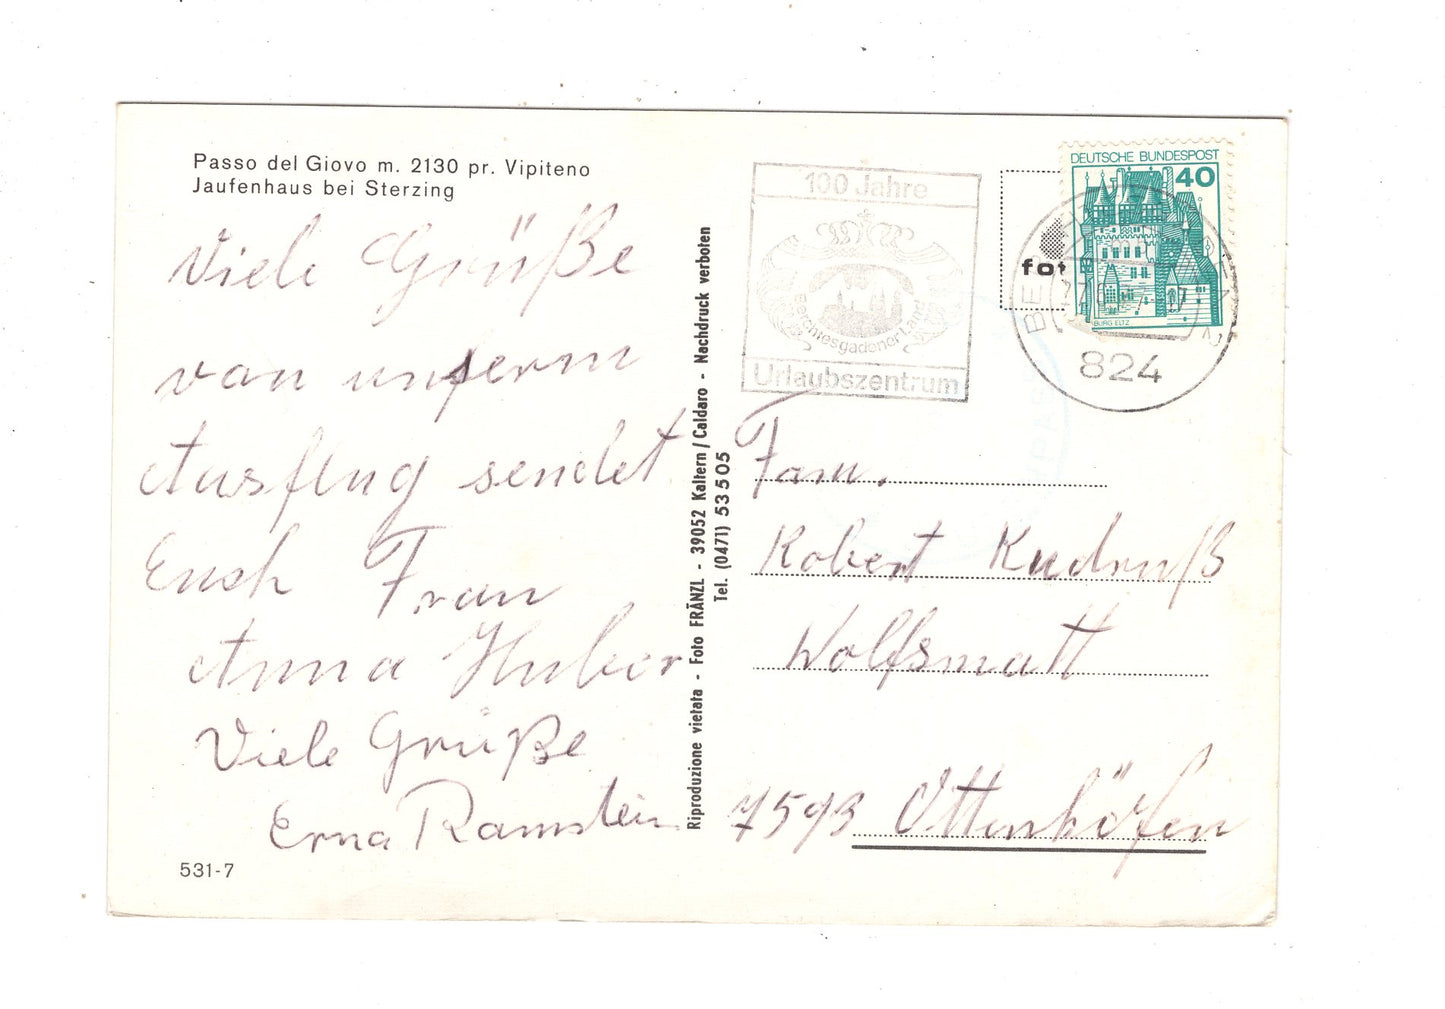 Passo del Giovo m. 2130 pr. Vipiteno
Jaufenhaus bei Sterzing
Viele Grüße
von unserm
Ausflug sendet
Euch Frau
Anna Huber
Viele Grüße
Erna Ramstein
531-7
Riproduzione vietata - Foto FRÄNZL - 39052 Kaltern / Caldaro - Nachdruck verboten
Tel. (0471) 53505
100 Jahre
Berchtesgadener Land
Urlaubszentrum
DEUTSCHE BUNDESPOST
40
BURG ELTZ
fot
824
Fam.
Robert Kudruß
Wolfsmatt
7593 Ottenhöfen